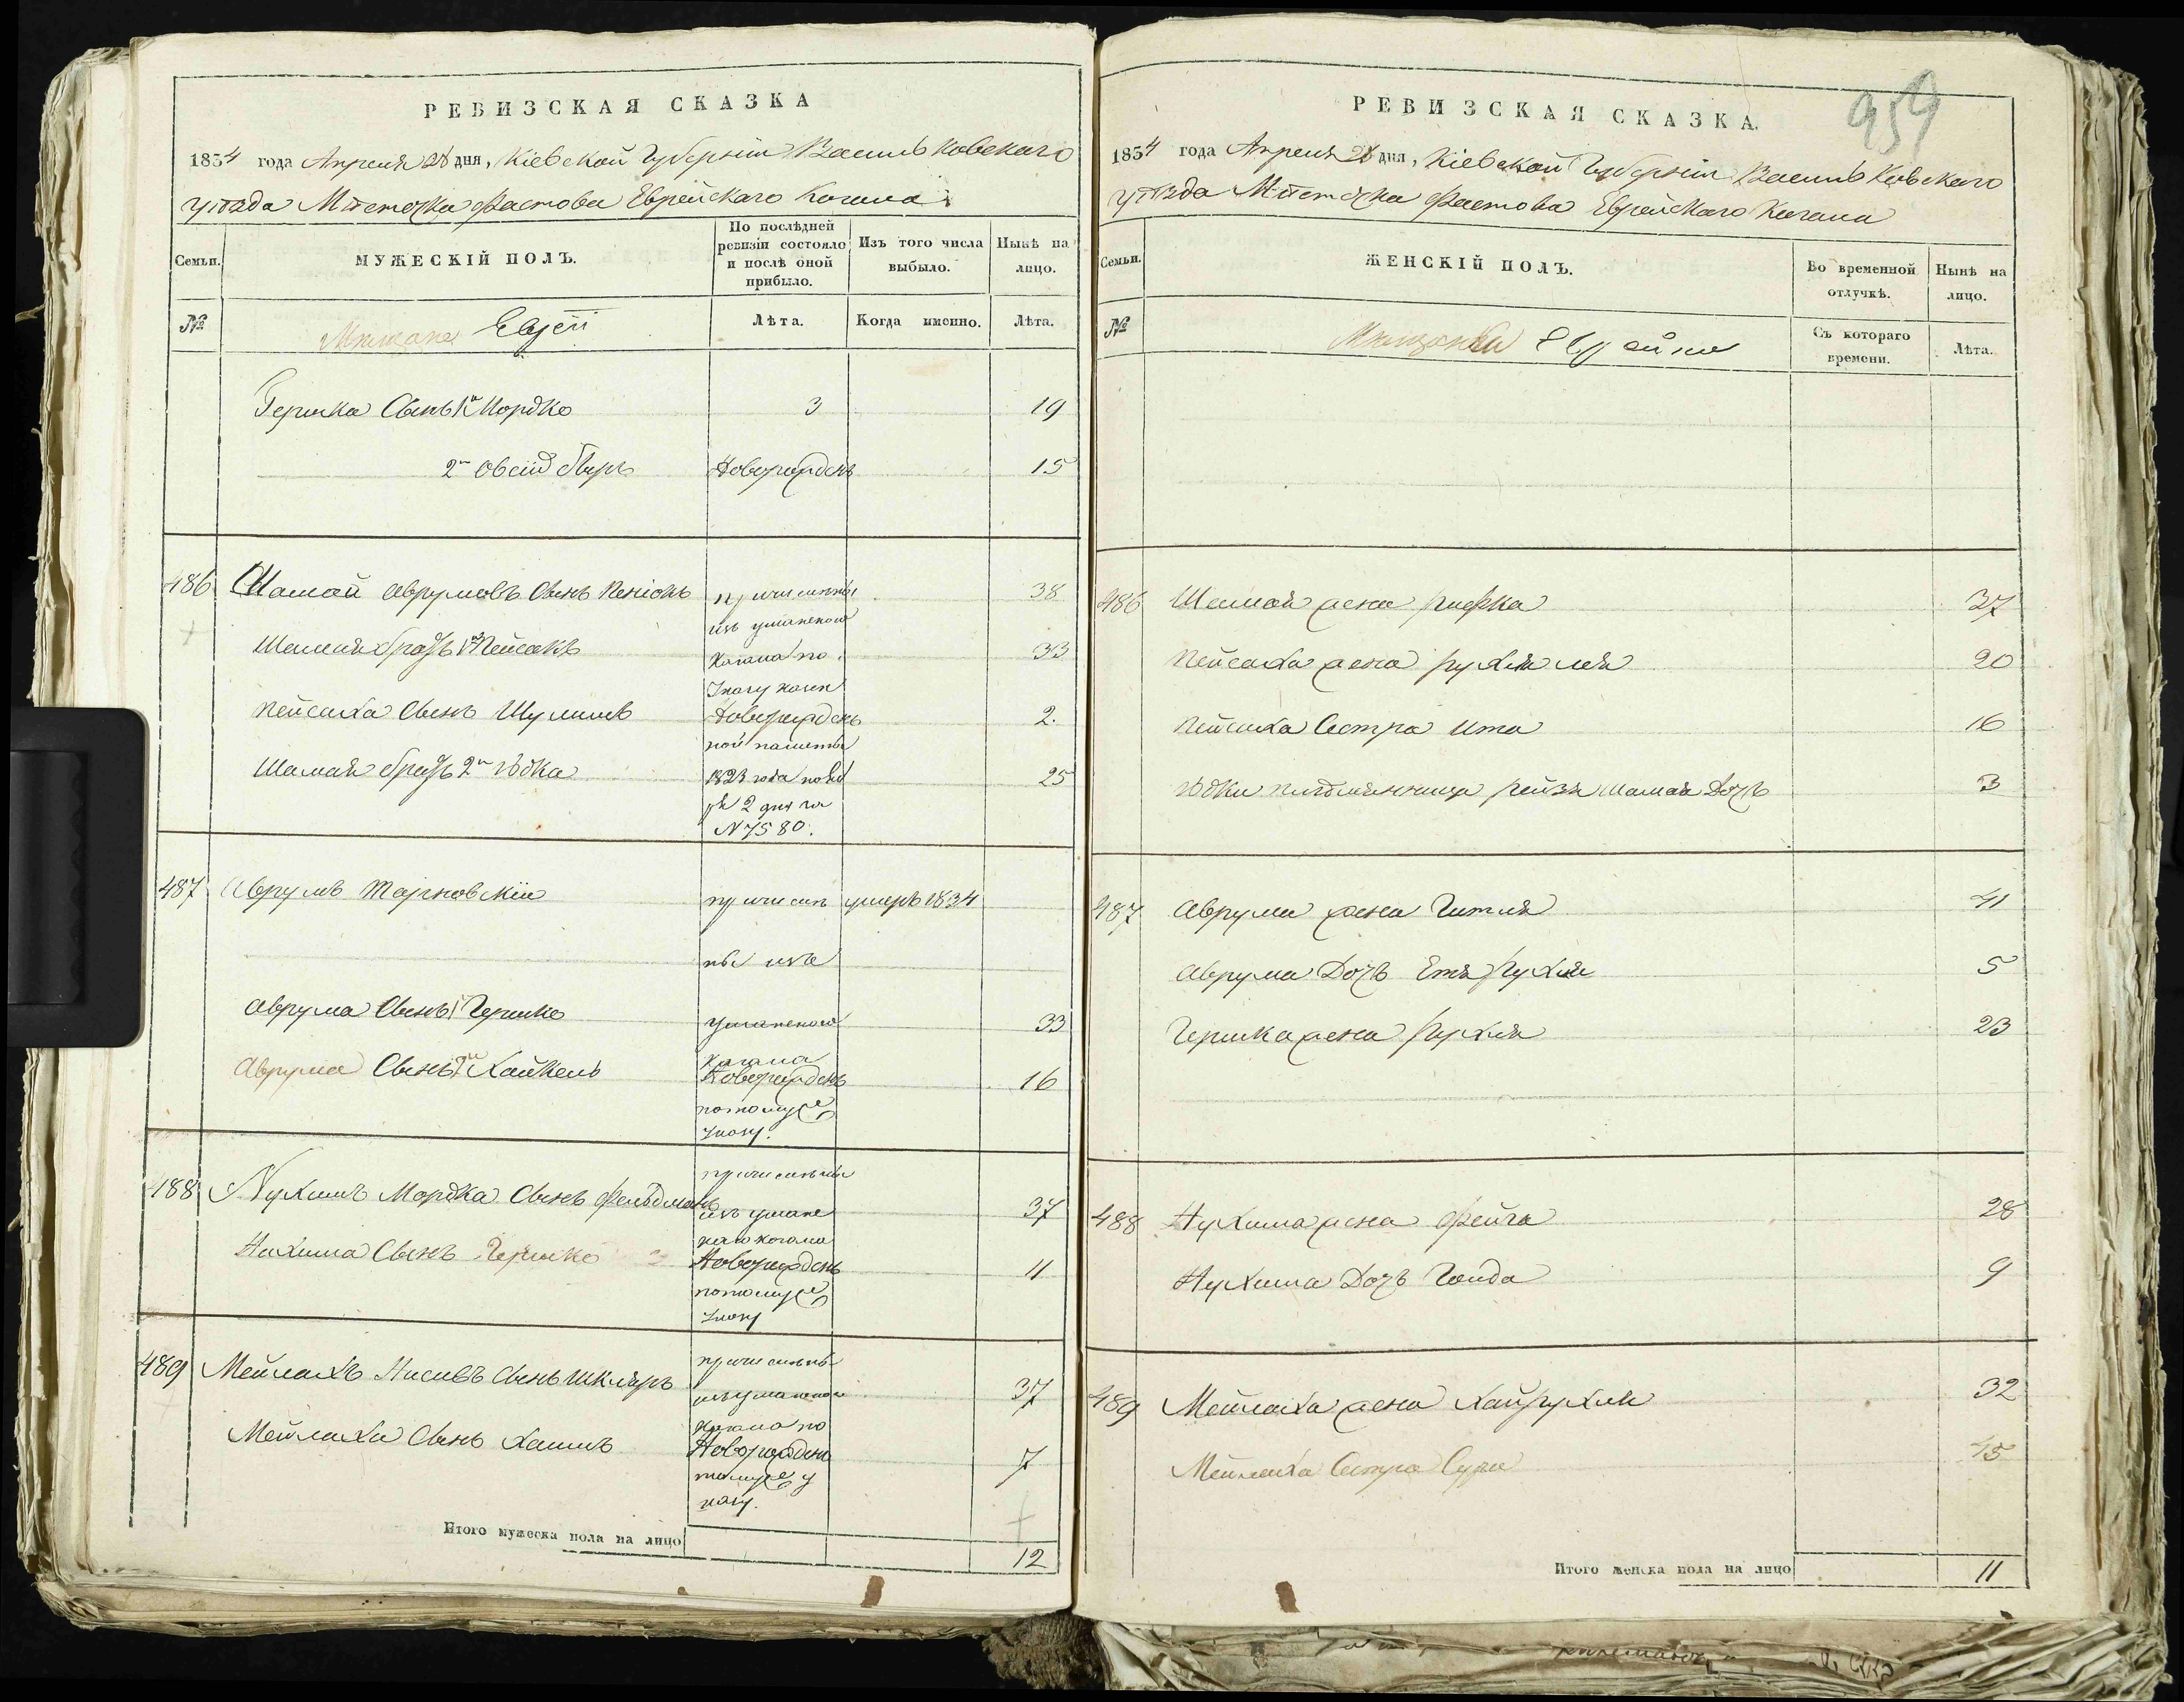 РЕВИЗСКАЯ СКАЗКА
1834 года Апреля 28 дня, Кіевской Губерніи Васильковского
уѣзда Мѣстечка Фастова Еврейского Кагала
Семьи.
МУЖЕСКІЙ ПОЛЪ.
По послѣдней ревизіи состояло и послѣ оной прибыло.
Изъ того числа выбыло.
Нынѣ на лицо.
№
Мѣщане Евреи
Лѣта.
Когда именно.
Лѣта.
Гершка Сынъ 1й Мордко 3 19
2й Овсій Беръ Новорожденъ 15
486 Шамай Аврумовъ Сынъ 38
причисленны
изъ уманского
Шамая братъ 1й Пейсахъ 33
Кагала по
Указу казен
Пейсаха Сынъ Шулимъ Новорожденъ 2.
ной палаты
Шамая братъ 2й 25
года
2 дня за
N 7580.
487 Аврумъ Тарновскій причислен умеръ 1834
ны изъ
Аврума Сынъ 1 Гершко уманского 33
Кагала
Аврума Сынъ 2й Хайкель Новорожденъ 16
потомуже
Указу.
488 Нухимъ Мордка Сынъ Фельдманъ 37
причисленны
изъ умане
кого Кагала
Нахима Сынъ Гершко Новорожденъ 11
потомуже
Указу
489 Мейлахъ Сынъ Шкляръ 37
причисленны
изъ уманского
Кагала по
Мейлаха Сынъ Хаимъ Новорожденъ 7
томуже у
казу.
Итого мужеска пола на лицо 12
959
РЕВИЗСКАЯ СКАЗКА.
1834 года Апреля 28 дня, Кіевской Губерніи Васильковского
уѣзда Мѣстечка Фастова Еврейского Кагала
Семьи.
ЖЕНСКІЙ ПОЛЪ.
Во временной отлучкѣ.
Нынѣ на лицо.
№
Мѣщанки Еврейки
Съ котораго времени.
Лѣта.
486 Шамая жена Рифка 37
Пейсаха жена Рухля Лея 20
Пейсаха Сестра Ита 16
племянница Рейзя Шамая Дочь 3
487 Аврума жена Гитля 41
Аврума Дочь Етя Рухля 5
Гершка жена Рухля 23
488 Нухима жена Фейга 28
Нухима Дочь Голда 9
489 Мейлаха жена Хайрухля 32
Мейлаха Сестра Сура 15
Итого женска пола на лицо 11